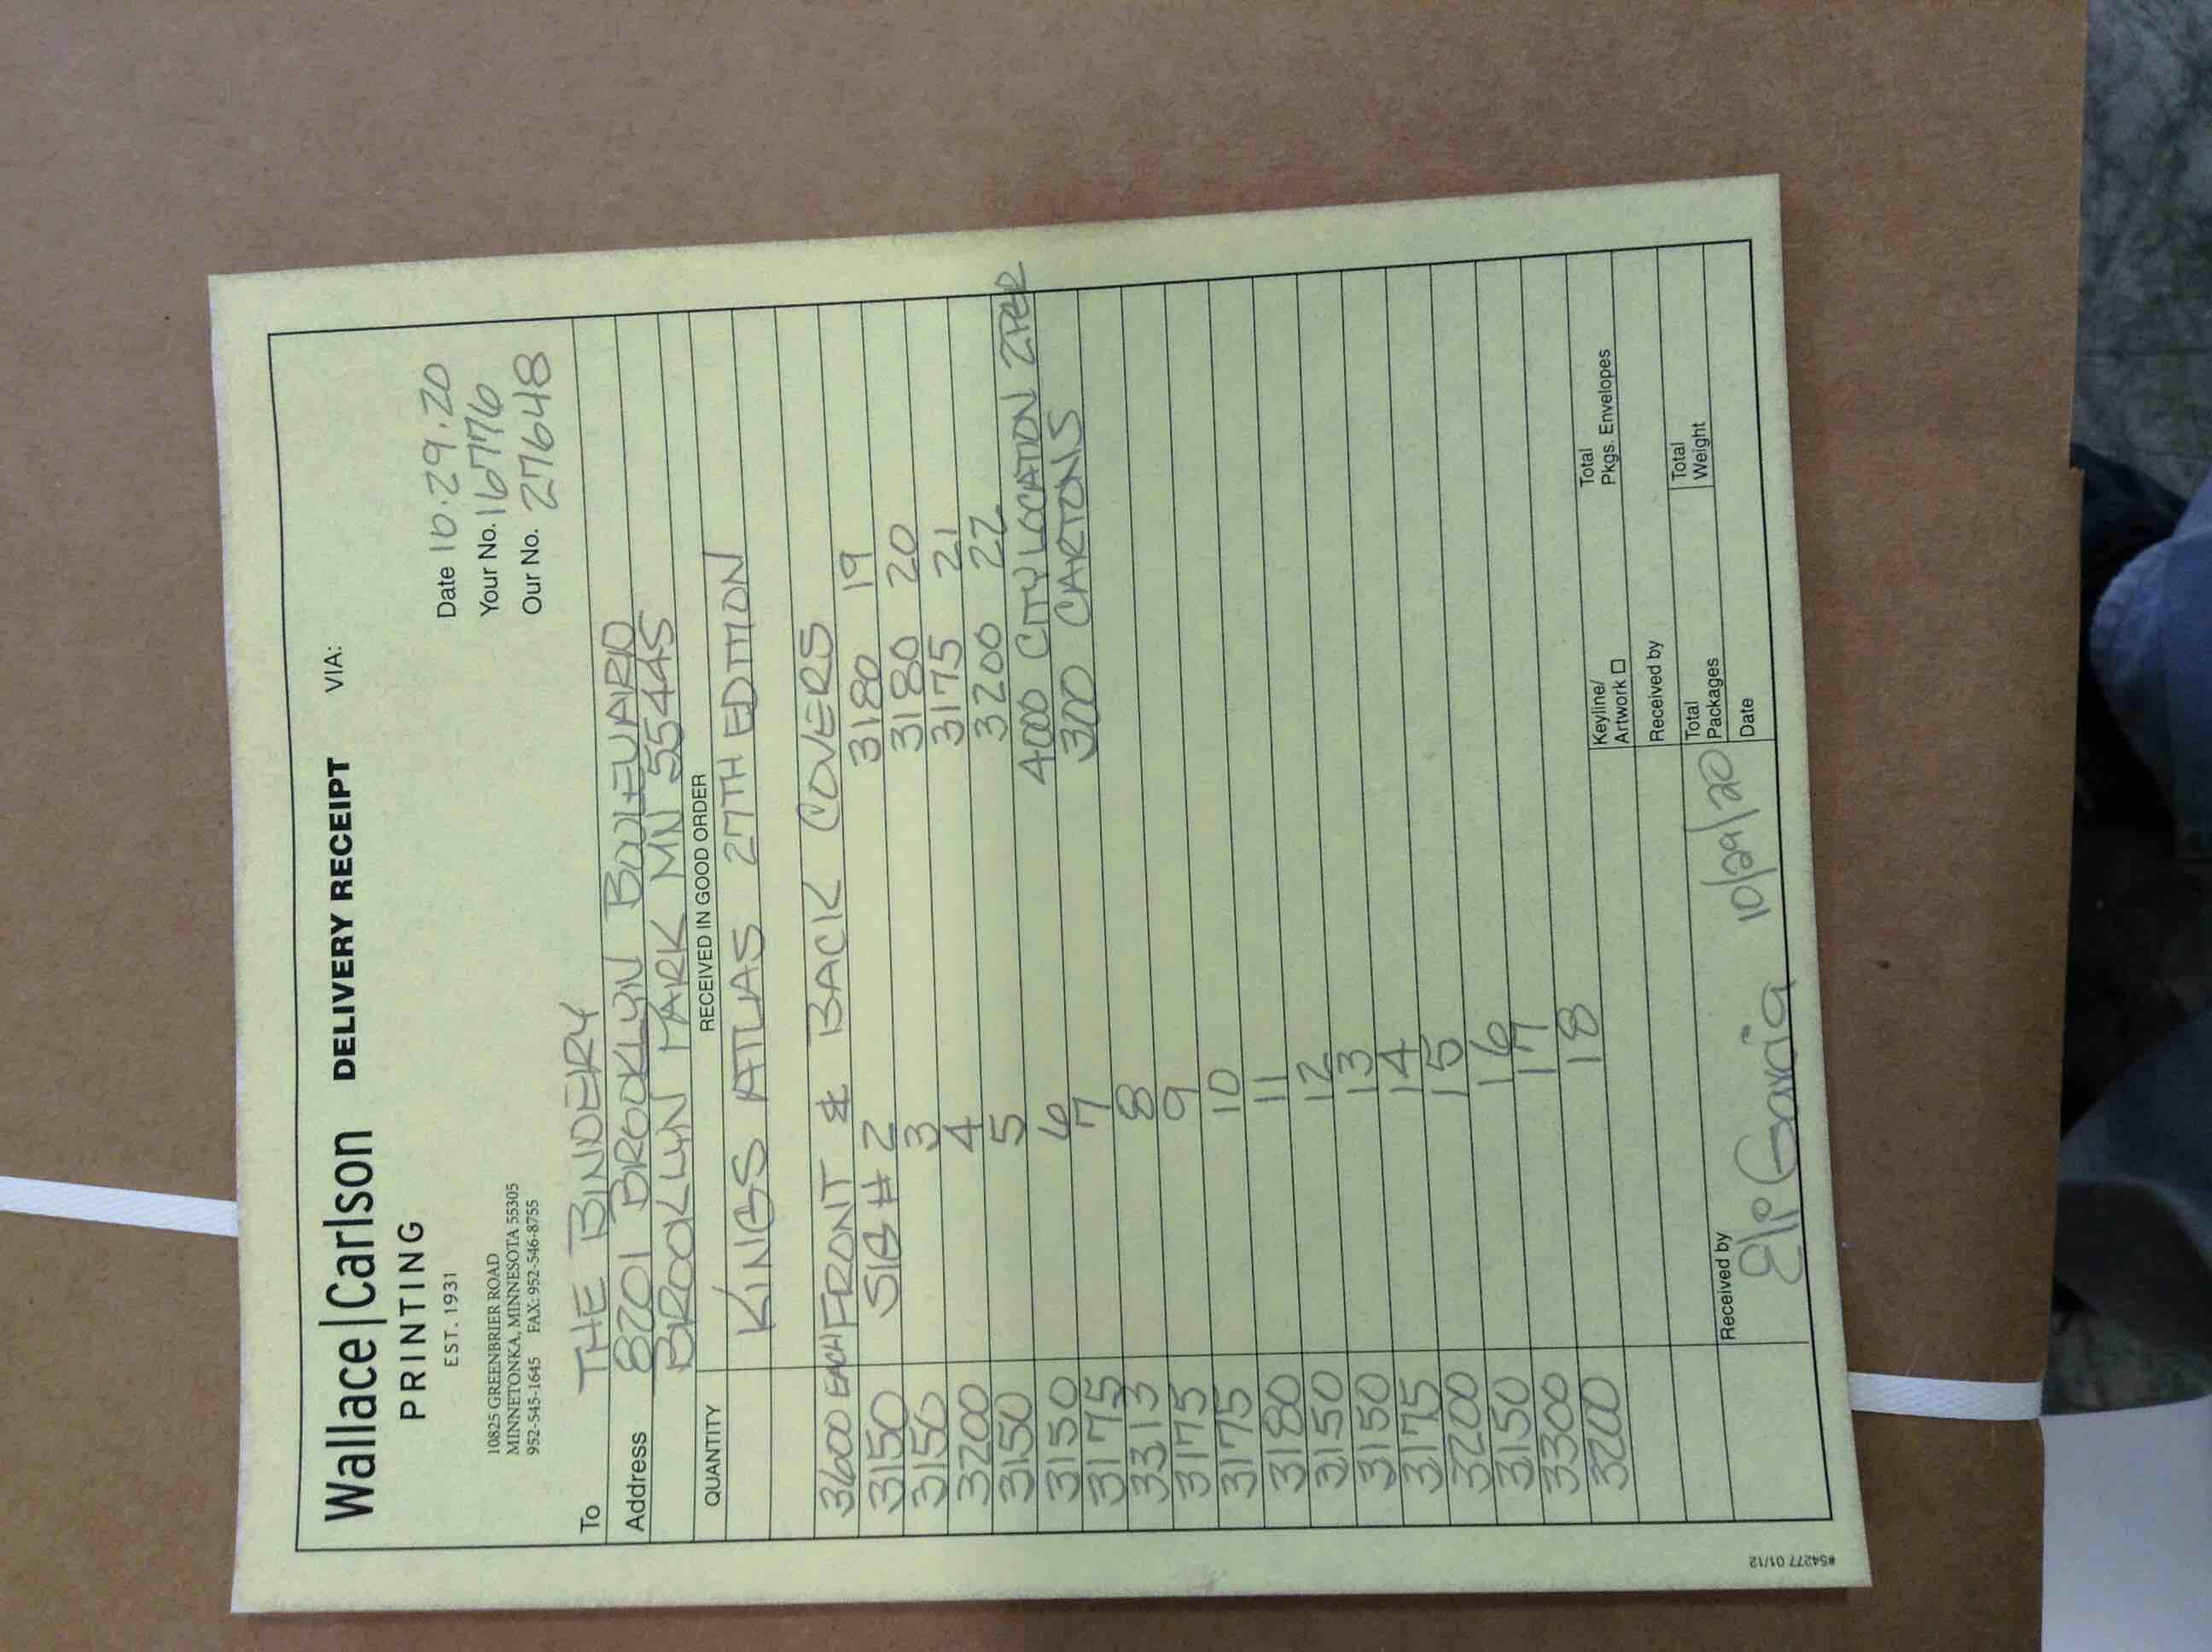 Wallace|Carlson DELIVERY RECEIPT VIA:
PRINTING
EST. 1931
Date 10.29.20
Your No. 16776
Our No. 27648
10825 GREENBRIER ROAD
MINNETONKA, MINNESOTA 55305
952-545-1645 FAX: 952-546-8755
To THE BINDERY
Address 8201 BROOKLYN BOULEVARD
BROOKLYN PARK MN 55445
QUANTITY RECEIVED IN GOOD ORDER
KINGS ATLAS 27TH EDITION
3600 EACH FRONT & BACK COVERS
3150 SIG # 2 3180 19
3150 3 3180 20
3200 4 3175 21
3150 5 3200 22
3150 6 4000 CITY LOCATION 2 PER
3175 7 300 CARTONS
3313 8
3175 9
3175 10
3180 11
3150 12
3150 13
3175 14
3200 15
3150 16
3300 17
3200 18
Keyline/ Artwork □ Total Pkgs. Envelopes
Received by
Total Packages Total Weight
Received by Elp Garcia 10/29/20 Date
#54277 01/12